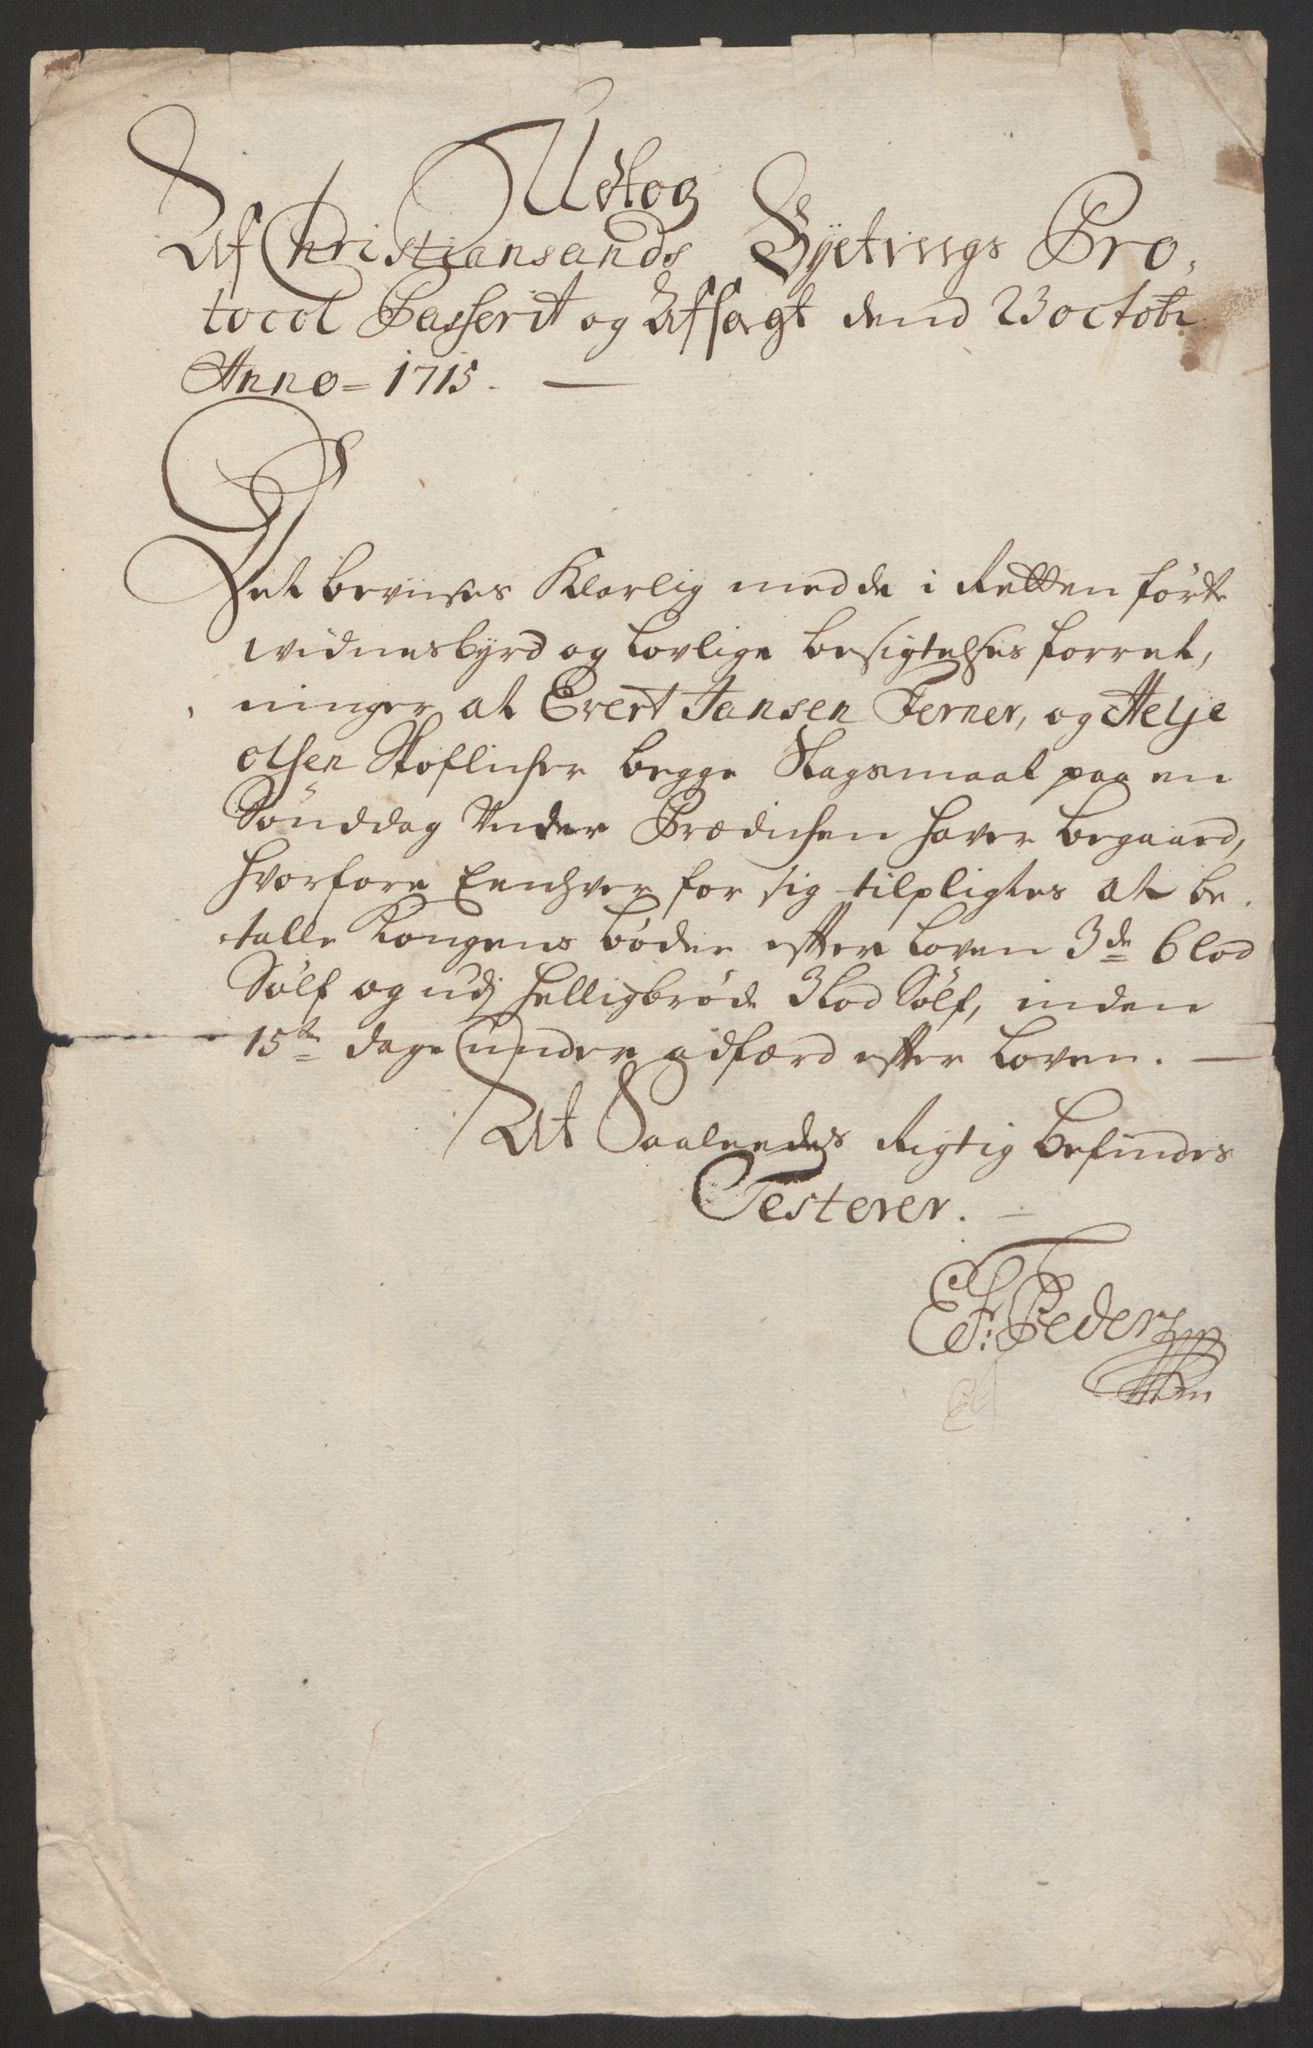 Udtog
Af Christiansands Byetings Pro,
tocol Passerit og Afsagt dend 23 octobr
Anno = 1715. —
Det beviises Klarlig med de i Retten førte
widnesbyrd og lovlige besigtelses forret,
ninger at Evert Jansen Ferner, og Helje
olsen begge Slagsmaal paa en
Sønddag Under Prædichen haver begaaed,
hvorfore Eenhver for sig tilpligtes at be,
talle Kongens bøder effter loven 3de 6 lod
Sølf og udj Helligbrøde 3 lod Sølf, inden
15ten dage under adfærd effter loven. —
At Saaleedes Rigtig befindes
Testerer. —
E. F: Peders